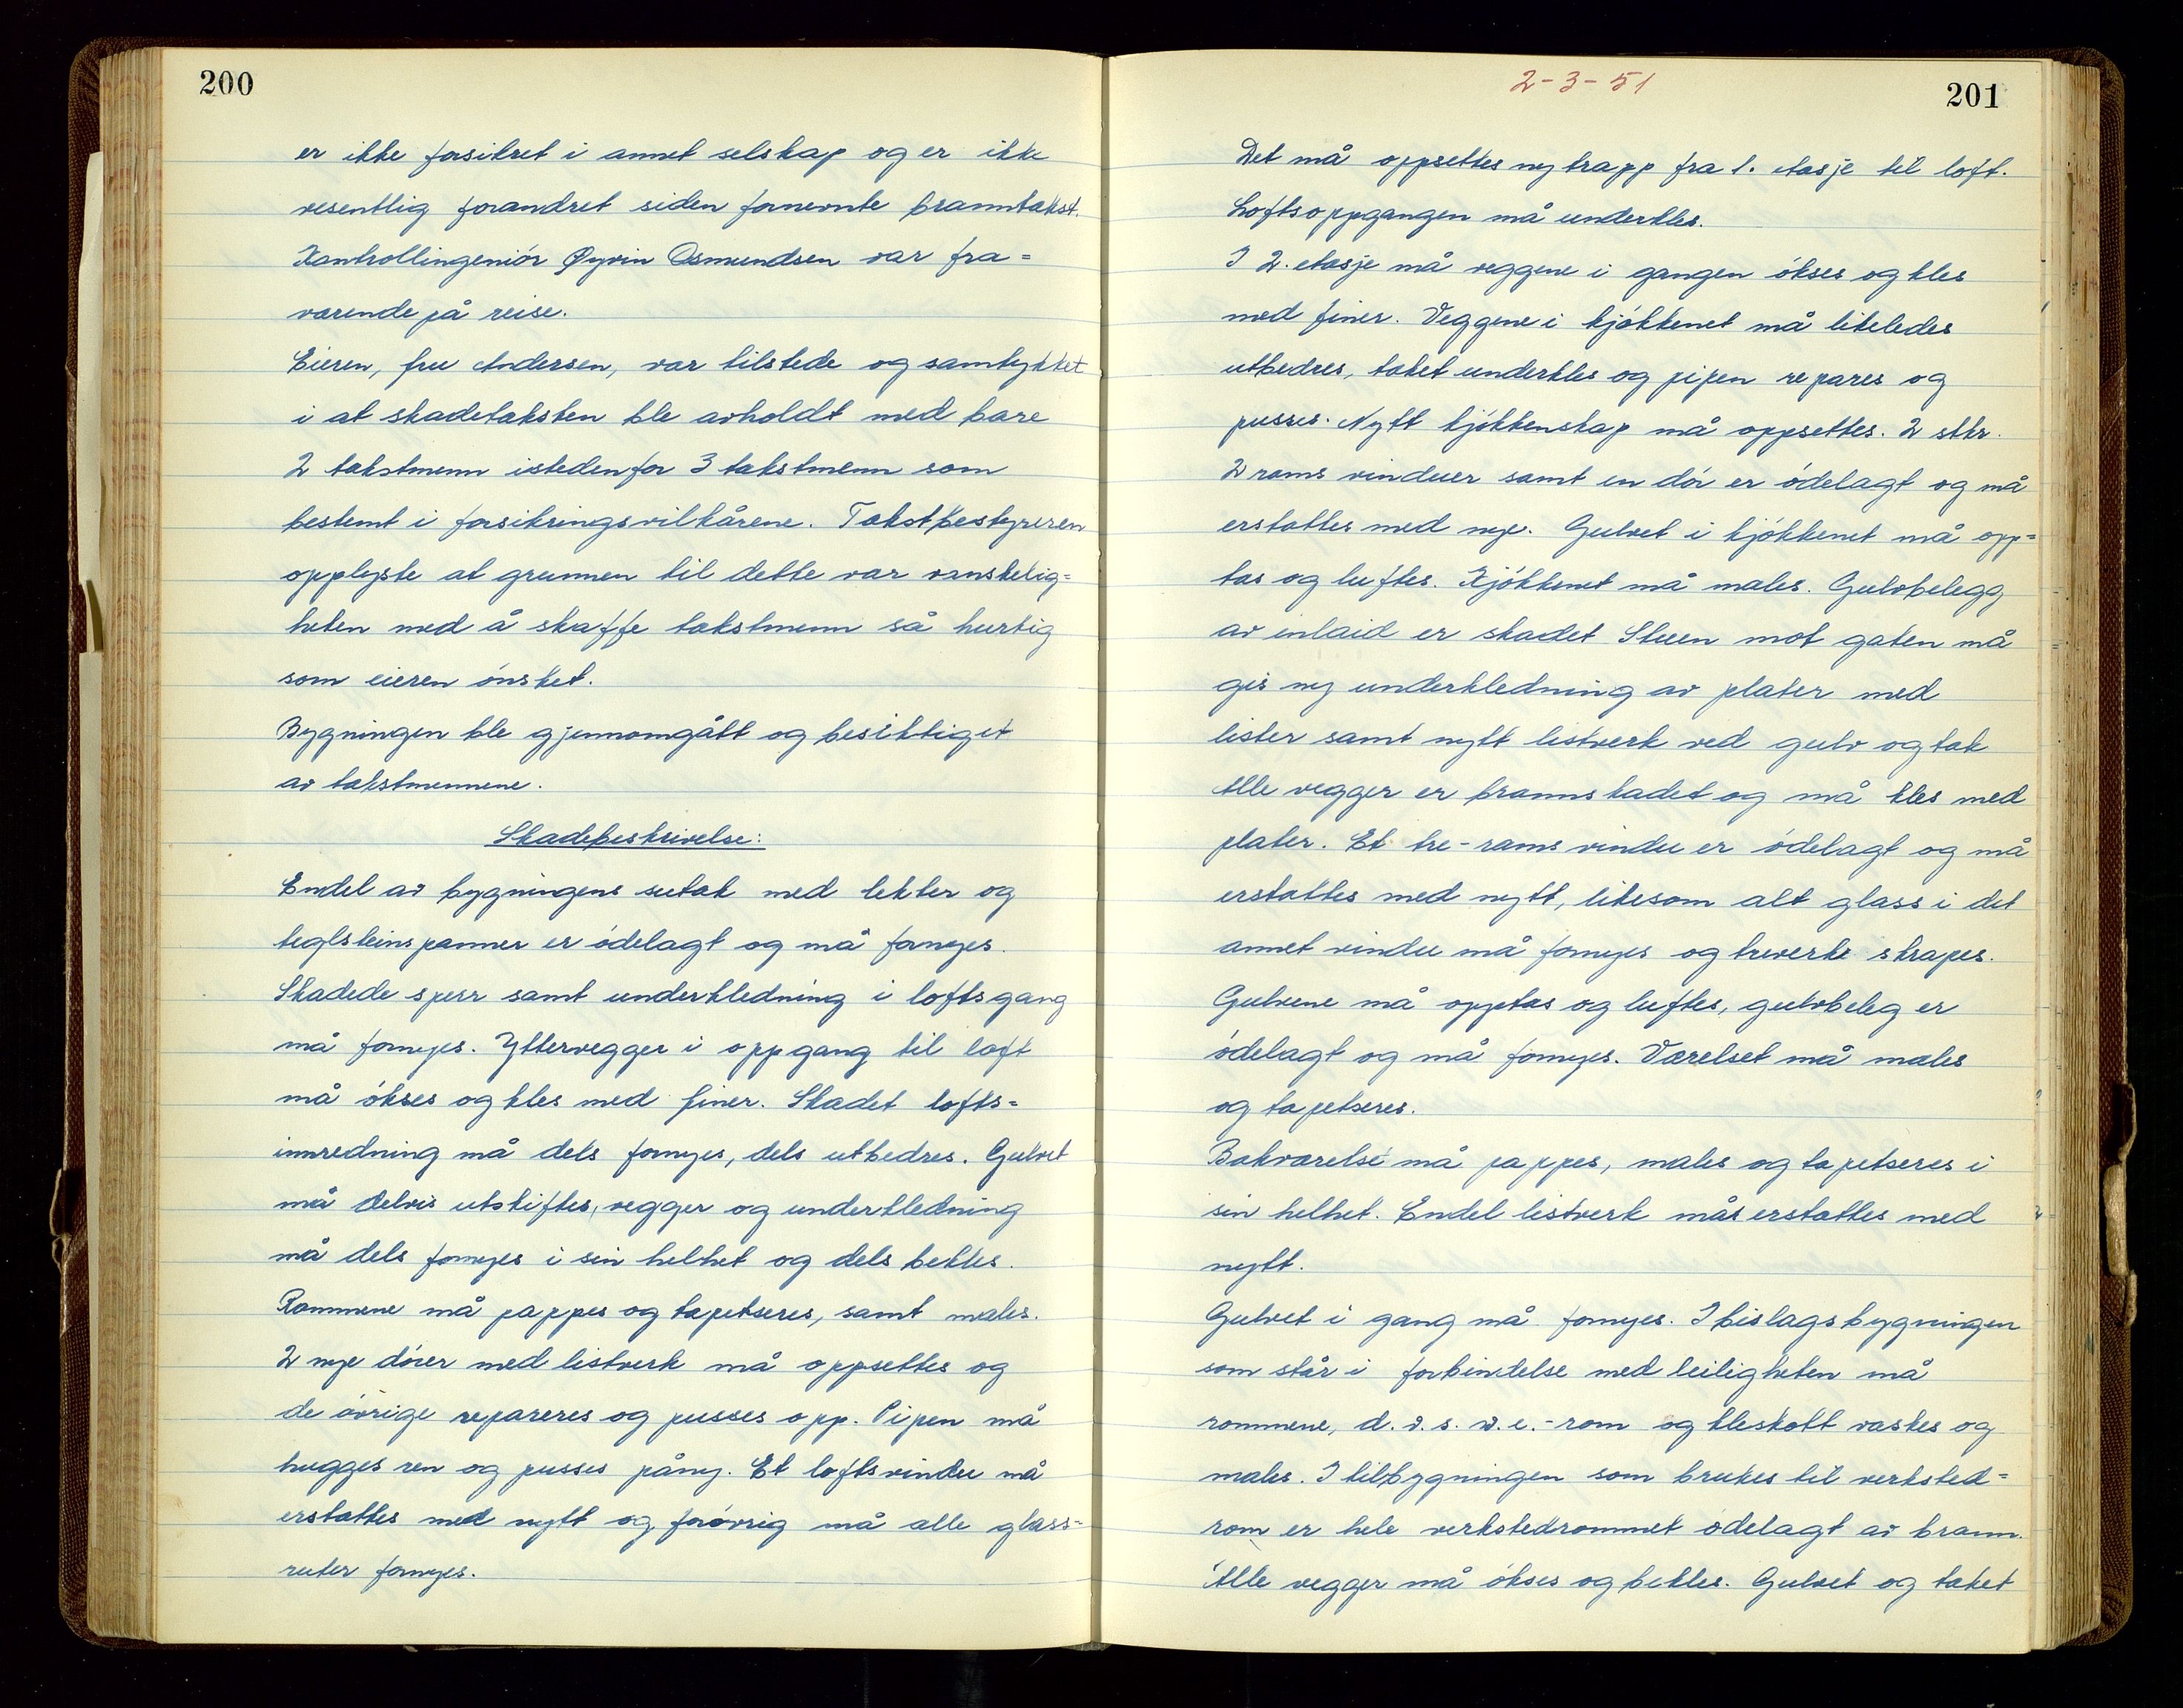 200
er ikke forsikret i annet selskap og er ikke
vesentlig forandret siden fornevnte branntakst.
Kontrollingeniör Øyvin Osmundsen var fra=
værende på reise.
Eieren, fru Andersen, var tilstede og samtykket
i at skadetaksten ble avholdt med bare
2 takstmenn istedenfor 3 takstmenn som
bestemt i forsikringsvilkårene. Takstbestyreren
opplyste at grunnen til dette var vanskelig=
heten med å skaffe takstmenn så hurtig
som eieren ónsket.
Bygningen ble gjennomgått og besiktiget
av takstmennene.
Skadebeskrivelse:
Endel av bygningens sutak med lekter og
teglsteinspanner er ódelagt og må fornyes.
Skadede sperr samt underkledning i loftsgang
må fornyes. Yttervegger i oppgang til loft
må ókses og kles med finer. Skadet lofts=
innredning må dels fornyes, dels utbedres. Gulvet
må delvis utskiftes, vegger og underkledning
må dels fornyes i sin helhet og dels bekles.
Rommene må pappes og tapetseres, samt males.
2 nye dórer med listverk må oppsettes og
de óvrige repareres og pusses opp. Pipen må
hugges ren og pusses påny. Et loftsvindu må
erstattes med nytt og foróvrig må alle glass=
ruter fornyes.
2-3-51
201
Det må oppsettes ny trapp fra 1. etasje til loft.
Loftsoppgangen må underkles.
I 2. etasje må veggene i gangen ókses og kles
med finer. Veggene i kjókkenet må likeledes
utbedres, taket underkles og pipen repares og
pusses. Nytt kjókkenskap må oppsettes. 2 stkr.
2 rams vinduer samt en dór er ódelagt og må
erstattes med nye. Gulvet i kjókkenet må opp=
tas og luftes. Kjókkenet må males. Gulvbelegg
av inlaid er skadet Stuen mot gaten må
gis ny underkledning av plater med
lister samt nytt listverk ved gulv og tak
Alle vegger er brannskadet og må kles med
plater. Et tre-rams vindu er ódelagt og må
erstattes med nytt, likesom alt glass i det
annet vindu må fornyes og treverke skrapes.
Gulvene må opptas og luftes, gulvbeleg er
ódelagt og må fornyes. Værelset må males
og tapetseres.
Bakværelse må pappes, males og tapetseres i
sin helhet. Endel listverk mås erstattes med
nytt.
Gulvet i gang må fornyes. I bislagsbygningen
som står i forbindelse med leiligheten må
rommene, d.v.s. w.c.-rom og kleskott vaskes og
males. I tilbygningen som brukes til verksted=
rom er hele verkstedrommet ódelagt av brann.
Alle vegger må ókses og bekles. Gulvet og taket